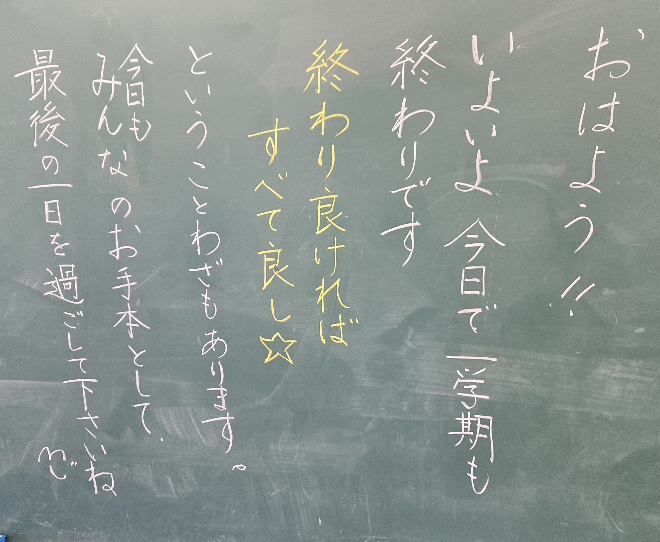 おはよう!!
いよいよ今日で一学期も
終わりです
終わり良ければ
すべて良し☆
ということわざもあります。
今日も
みんなのお手本として、
最後の一日を過ごして下さいね